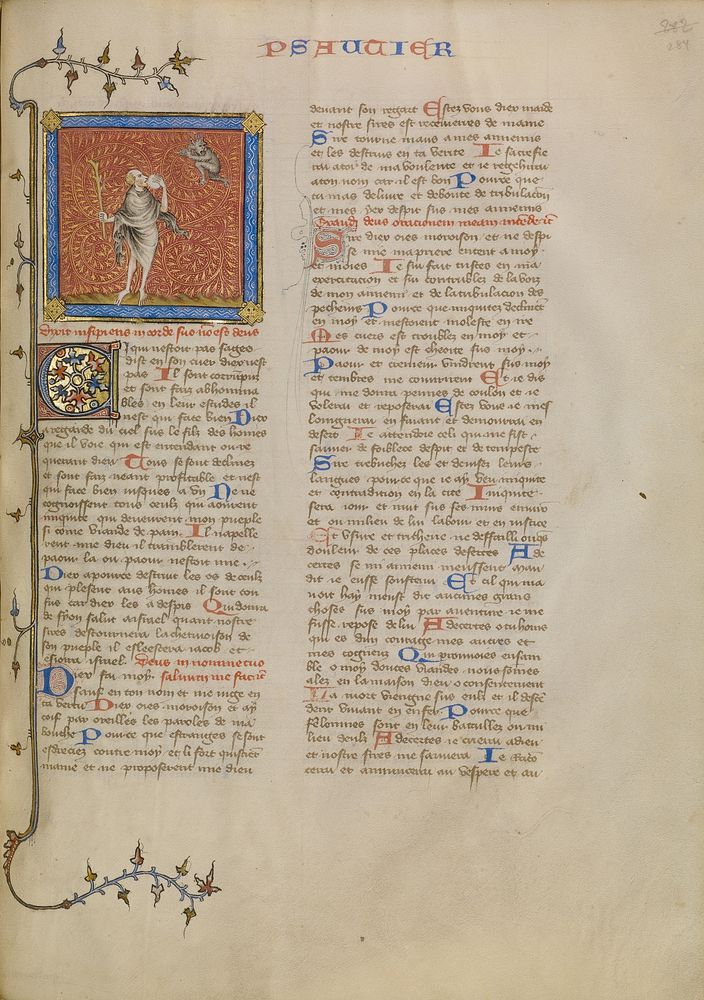 PSAUTIER
282
284
Dixit insipiens in corde suo non est deus
il qui nestoit pas sages
dist en son cuer dieu nest
pas Il sont corrumpu
et sont faiz abhomina
bles en leurs estudes il
nest qui face bien Dieu
a regarde du ciel sus le filz des homes
que il voie qui est entendant ou re
querant dieu Tous se sont declinez
et sont faiz neant profitable et nest
qui face bien iusques a un Ne ne
cognoissent tous ceulz qui aouvrent
iniquite qui deveurent mon pueple
si come viande de pain Il napelle
rent mie dieu il tramblerent de
paour la ou paour nestoit mie
Dieu a pource destruit les os de ceulz
qui plesent aus homes il sont con
fus car dieu les a despis Qui donra
de syon salut a israel quant nostre
sires destournera la chetivoison de
son pueple il esleescera iacob et
esioira israel. Deus in nomine tuo
Dieu fai moy salvum me fac
sauf en ton nom et me iuge en
ta vertu Dieu oies moroison et ay
coif par oreilles les paroles de ma
bouche Pource que estranges se sont
esdreciez contre moy et li fort quistrent
mame et ne proposerent mie dieu
devant son regart Estez vous dieu maide
et nostre sires est receveires de mame
Sire tourne maus a mes annemis
et les destruis en ta verite Je sacrefie
rai a toi de ma voulente et ie regehirai
a ton nom car il est bon Pource que
tu mas delivre et deboute de tribulacion
et mes yex despit sus mes annemis
Exaudi deus orationem meam
Sire dieu oies moroison et ne despi
se mie ma priere entent a moy
et moies Je sui fait tristes en ma
exercitacion et sui contriblez de la voiz
de mon annemi et de la tribulacion des
pecheurs Pource que iniquitez declinerent
en moy et mestoient moleste en ire
Mes cuers est troublez en moy et
paour de moy est cheoite sus moy
Paour et cremeur vindrent sus moy
et tenebres me couvrirent Et ie dis
qui me donra pennes de coulon et ie
volerai et reposerai Estez vous ie mes
loingnerai en fuiant et demourrai en
desert Je attendoie celi qui me fist
sauver de foiblece desprit et de tempeste
Sire trebuchez les et devisez leurs
langues pource que ie ay veu iniquite
et contradicion en la cite Iniquite
sera iour et nuit sus ses murs environ
et ou milieu de lui labour et en iustice
Et usure et tricherie ne deffailli onques
douleur de ces places desertes Adecertes
se mi annemi meussent maudit
ie eusse soustenu Et cil qui ma
voit hay meust dit aucunes grans
choses sus moy par aventure ie me
fusse repose de lui Adecertes o tu homs
qui es dun courage mes aucres et
mes cogneuz Qui prennoies ensam
ble o moy douces viandes nous sommes
alez en la maison dieu o consentement
La mort viengne sus eulz et il descen
dent vivant en enfer Pource que
felonnies sont en leur habitacles ou mi
lieu deulz Adecertes ie criai a dieu
et nostre sires me sauvera Je racon
terai et annuncerai au vespre et au